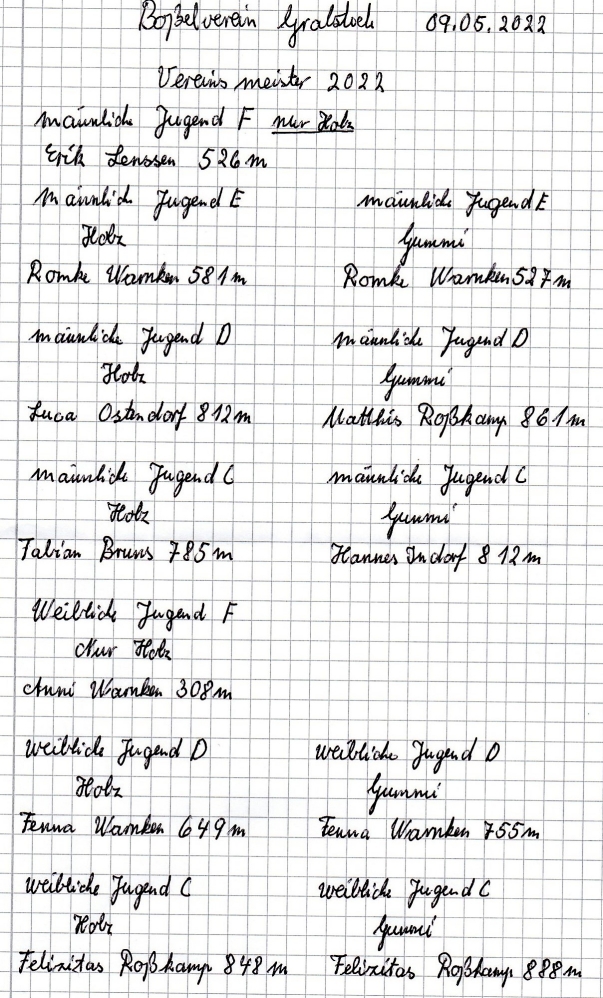 Boßelverein Gralstoch 09.05.2022
Vereinsmeister 2022
männliche Jugend F nur Holz
Erik Lenssen 526 m
Männlich Jugend E männliche Jugend E
Holz Gummi
Romke Warnken 581 m Romke Warnken 527 m
männliche Jugend D männliche Jugend D
Holz Gummi
Luca Ostendorf 812 m Matthis Roßkamp 861 m
männliche Jugend C männliche Jugend C
Holz Gummi
Fabian Bruns 785 m Hannes Indorf 812 m
Weibliche Jugend F
Nur Holz
Anni Warnken 308 m
weibliche Jugend D weibliche Jugend D
Holz Gummi
Fenna Warnken 649 m Fenna Warnken 755 m
weibliche Jugend C weibliche Jugend C
Holz Gummi
Felizitas Roßkamp 848 m Felizitas Roßkamp 888 m